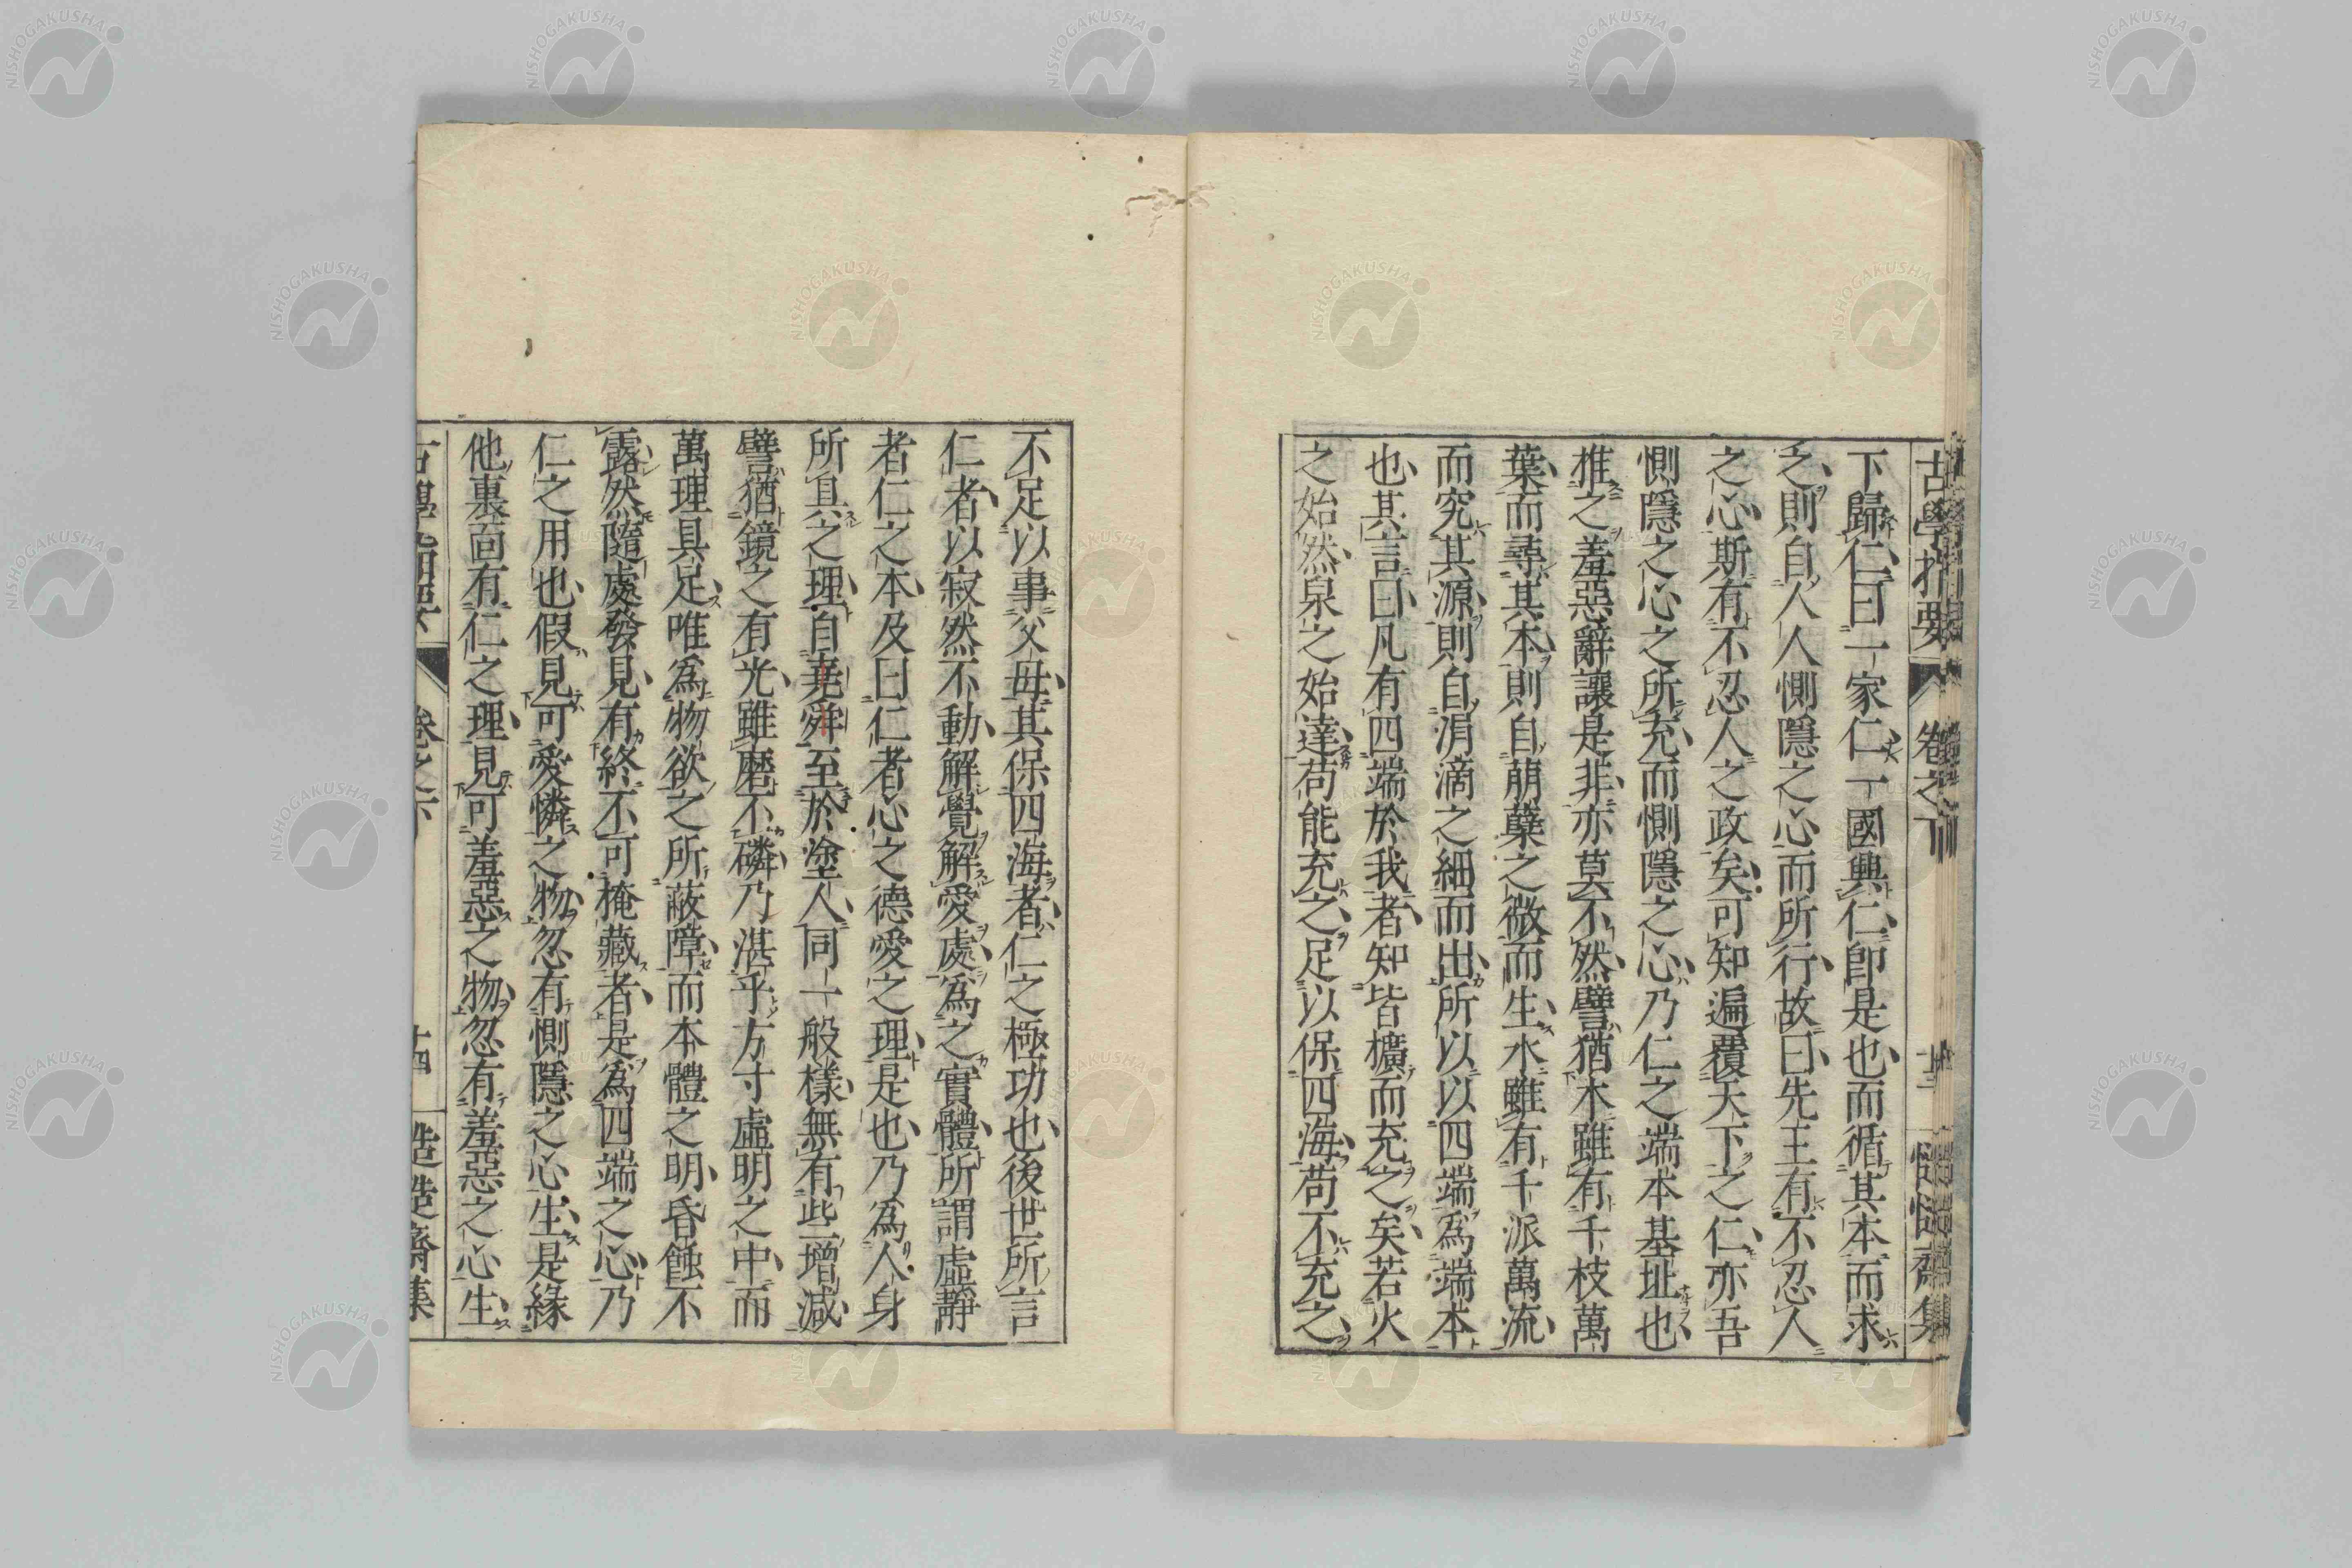 古學指要 卷之下 十三 慥慥齋集
下歸仁曰一家仁一國興仁卽是也而循其本而求
之則自人人惻隱之心而所行故曰先王有不忍人
之心斯有不忍人之政矣可知遍覆天下之仁亦吾
惻隱之心之所充而惻隱之心乃仁之端本基址也
推之羞惡辭讓是非亦莫不然譬猶木雖有千枝萬
葉而尋其本則自萠蘖之微而生水雖有千派萬流
而究其源則自涓滴之細而出所以以四端爲端本
也其言曰凡有四端於我者知皆擴而充之矣若火
之始然泉之始達苟能充之足以保四海苟不充之
不足以事父母其保四海者仁之極功也後世所言
仁者以寂然不動解覺解愛處爲之實體所謂虛靜
者仁之本及曰仁者心之德愛之理是也乃爲人身
所具之理自堯舜至於塗人同一般樣無有些增減
譬猶鏡之有光雖磨不磷乃湛乎方寸虛明之中而
萬理具足唯爲物欲之所蔽障而本體之明昏蝕不
露然隨處發見有終不可掩藏者是爲四端之心乃
仁之用也假見可愛憐之物忽有惻隱之心生是緣
他裏面有仁之理見可羞惡之物忽有羞惡之心生
古學指要 卷之下 十四 慥慥齋集